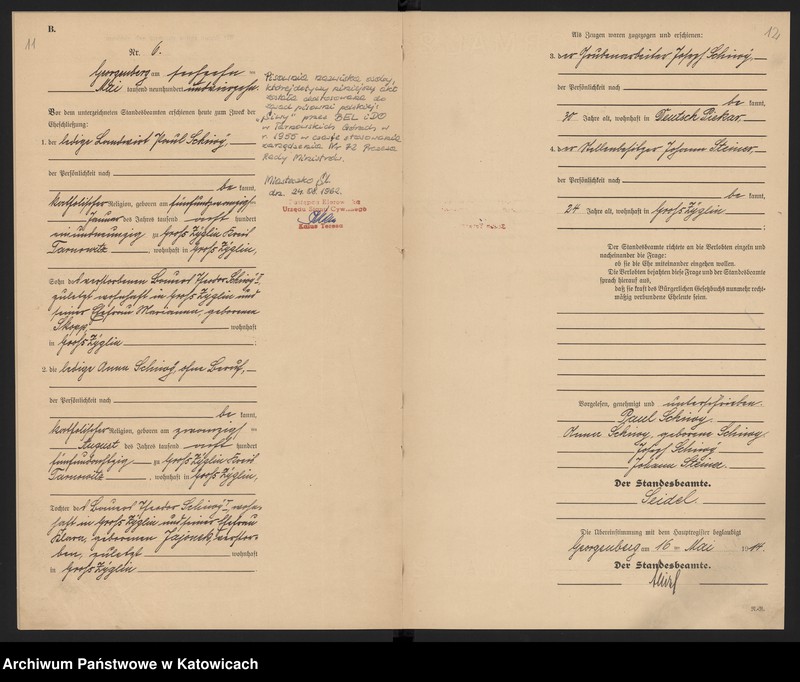 B.
11
Nr. 6.
Georgenberg am sechzehn =
Mai tausend neunhundert undvierzehn.
Vor dem unterzeichneten Standesbeamten erschienen heute zum Zweck der
Eheschließung:
1. der ledige Landwirt Paul Schiwy,
der Persönlichkeit nach
be kannt,
katholischer Religion, geboren am fünfundzwanzigs=
Januar des Jahres tausend acht hundert
einundneunzig zu Groß Zyglin Kreis
Tarnowitz, wohnhaft in Groß Zyglin,
Sohn des verstorbenen Bauers Theodor Schiwy I,
zuletzt wohnhaft in Groß Zyglin und
seiner Ehefrau Marianna, geborene
Skopp, wohnhaft
in Groß Zyglin
2. die ledige Anna Schiwy, ohne Beruf,
der Persönlichkeit nach
be kannt,
katholischer Religion, geboren am zwanzigs =
August des Jahres tausend acht hundert
fünfundachtzig zu Groß Zyglin Kreis
Tarnowitz, wohnhaft in Groß Zyglin,
Tochter des Bauers Theodor Schiwy I, wohn-
haft in Groß Zyglin und seiner Ehefrau
Klara, geborenen verstor-
ben, zuletzt wohnhaft
in Groß Zyglin
Pisownia nazwiska osoby,
której dotyczy niniejszy akt
została dostosowana do
zasad pisowni polskiej:
przez
w Tarnowskich Górach w
r. 1955 w czasie stosowania
zarządzenia Nr 72 Prezesa
Rady Ministrów.
Miasteczko Śl.
dn. 24.08.1962.
Zastępca Kierownika
Urzędu Stanu Cywilnego
12
Als Zeugen waren zugezogen und erschienen:
3. der Grubenarbeiter Josef Schiwy,
der Persönlichkeit nach
be kannt,
30 Jahre alt, wohnhaft in Deutsch Piekar.
4. der Stellenbesitzer Johann Steiner,
der Persönlichkeit nach
be kannt,
24 Jahre alt, wohnhaft in Groß Zyglin
Der Standesbeamte richtete an die Verlobten einzeln und
nacheinander die Frage:
ob sie die Ehe miteinander eingehen wollen.
Die Verlobten bejahten diese Frage und der Standesbeamte
sprach hierauf aus,
daß sie kraft des Bürgerlichen Gesetzbuchs nunmehr recht-
mäßig verbundene Eheleute seien.
Vorgelesen, genehmigt und unterschrieben.
Paul Schiwy.
Anna Schiwy, geborene Schiwy.
Josef Schiwy
Johann Steiner.
Der Standesbeamte.
Seidel.
Die Übereinstimmung mit dem Hauptregister beglaubigt
Georgenberg am 16 ten Mai 1914.
Der Standesbeamte.
Archiwum Państwowe w Katowicach